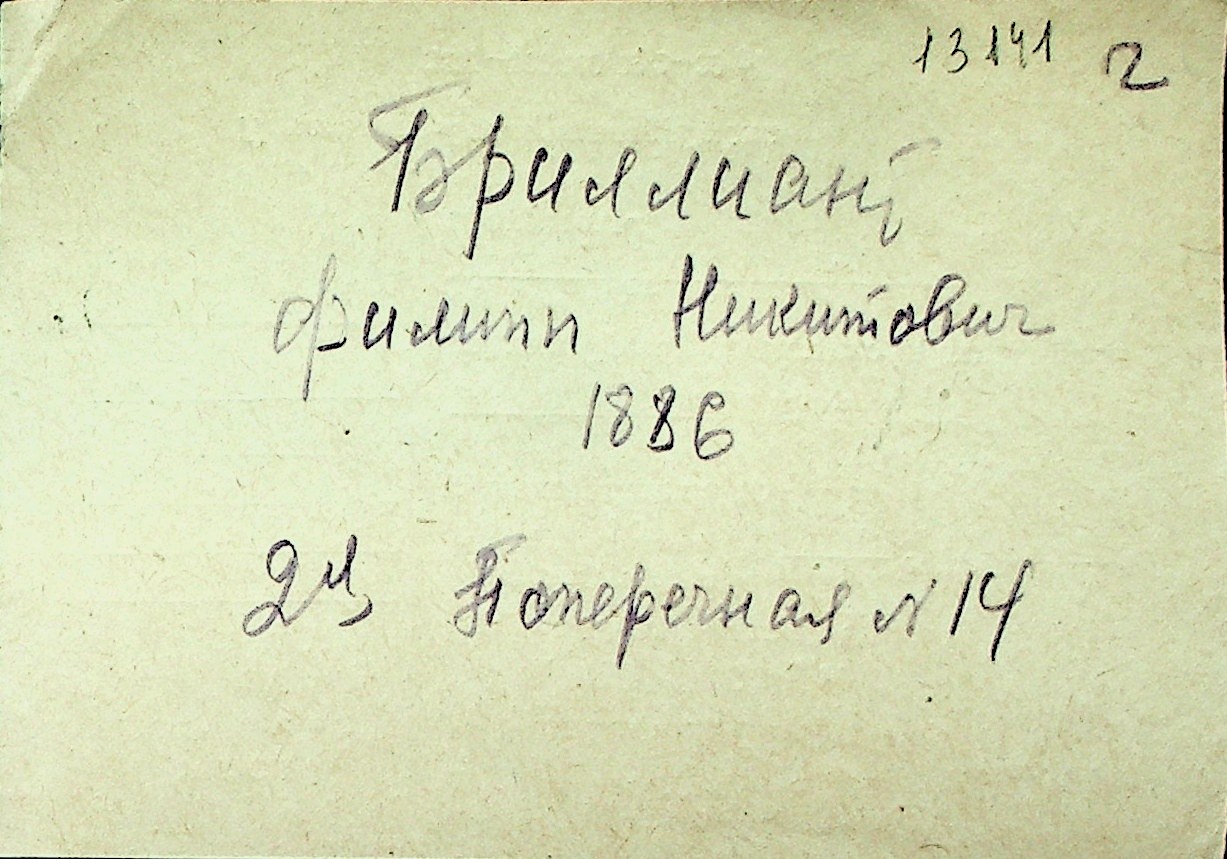 13141 2
Бриллиант
Филипп Никитович
1886
2я Поперечная N 14